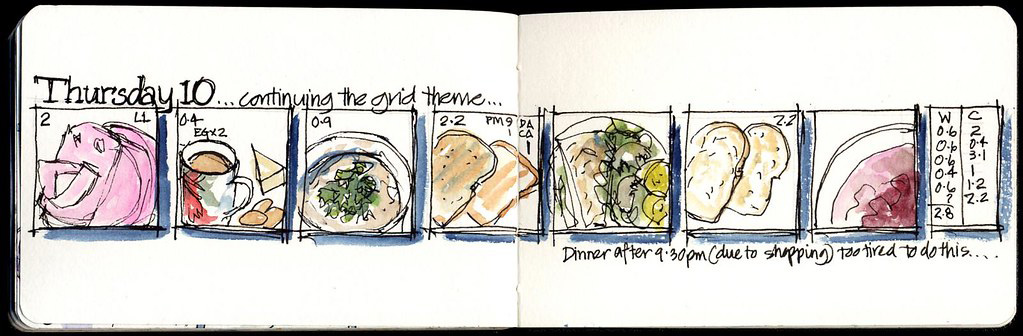 Thursday 10 ... continuing the grid theme...
2 L1
0.4
EGx2
0.9
2.2 PM9
1
DA
CA
1
2.2
W C
0.6 2
0.6 0.4
0.6 3.1
0.4 1
0.6 1.2
? 2.2
2.8
Dinner after 9.30pm (due to shopping) too tired to do this....